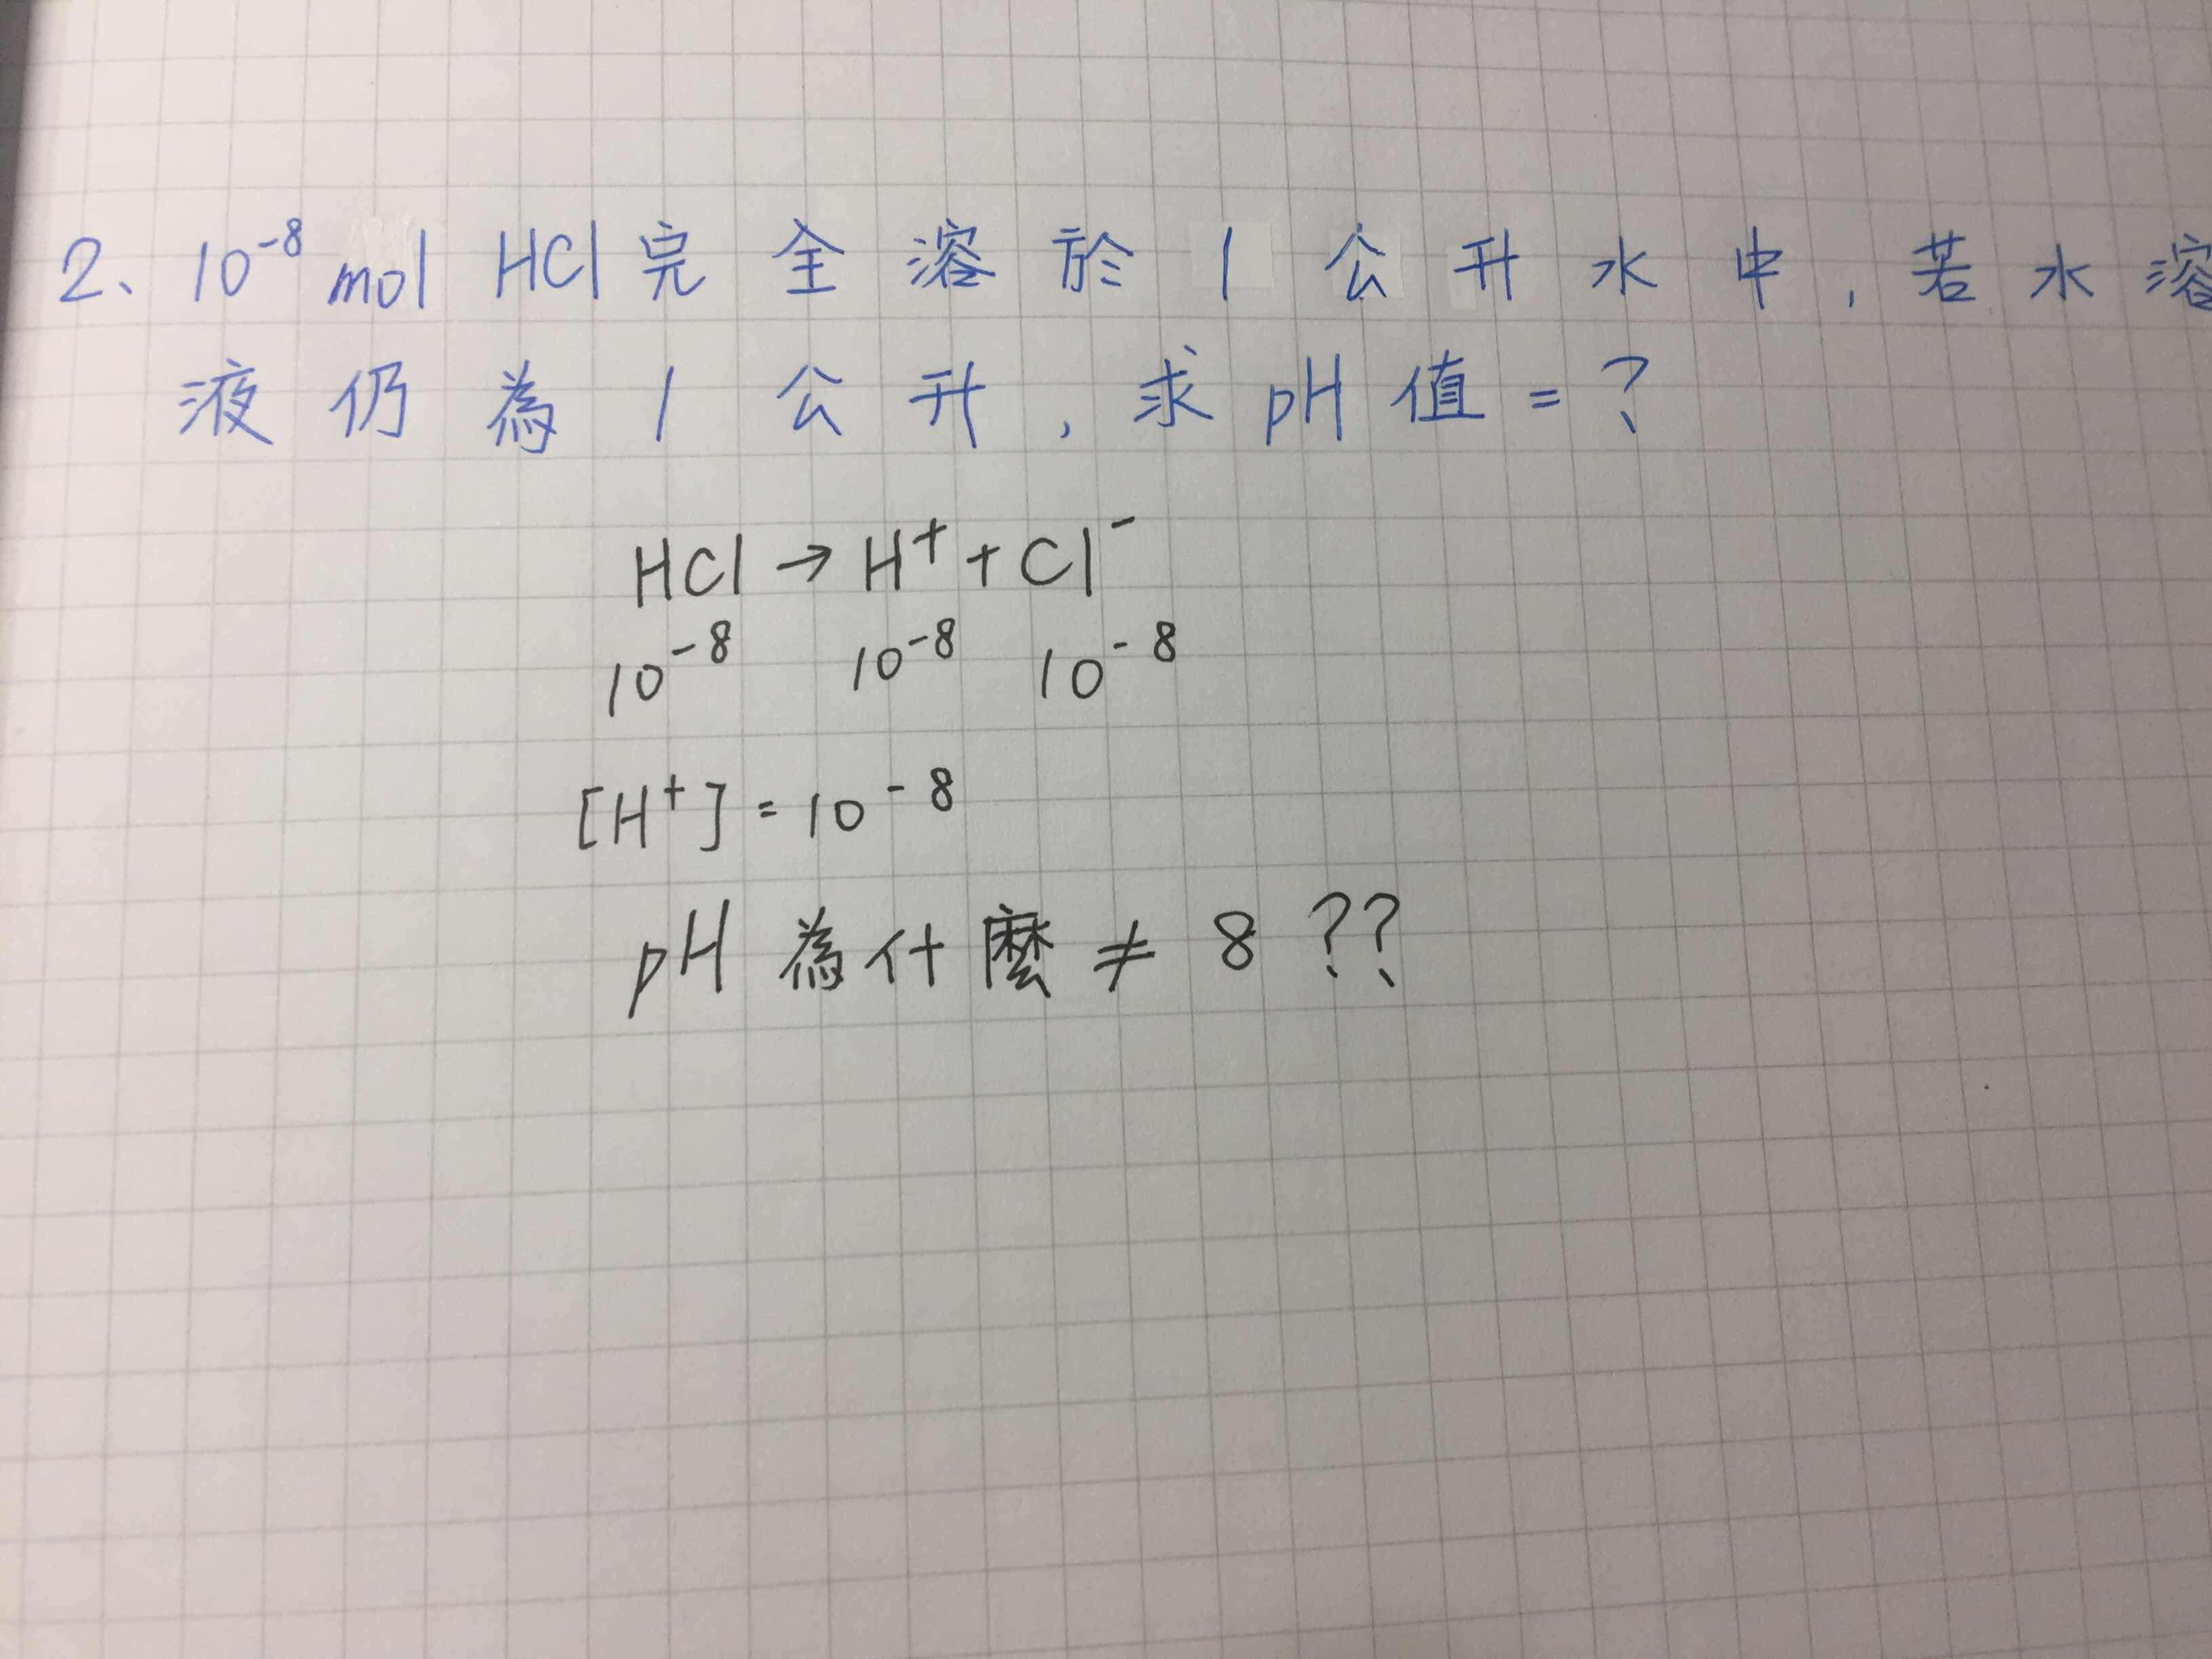 2、10⁻⁸ mol HCl 完全溶於 1 公升水中，若水溶
液仍為 1 公升，求 pH 值 = ?
HCl → H⁺ + Cl⁻
10⁻⁸ 10⁻⁸ 10⁻⁸
[H⁺] = 10⁻⁸
pH 為什麼 ≠ 8 ??